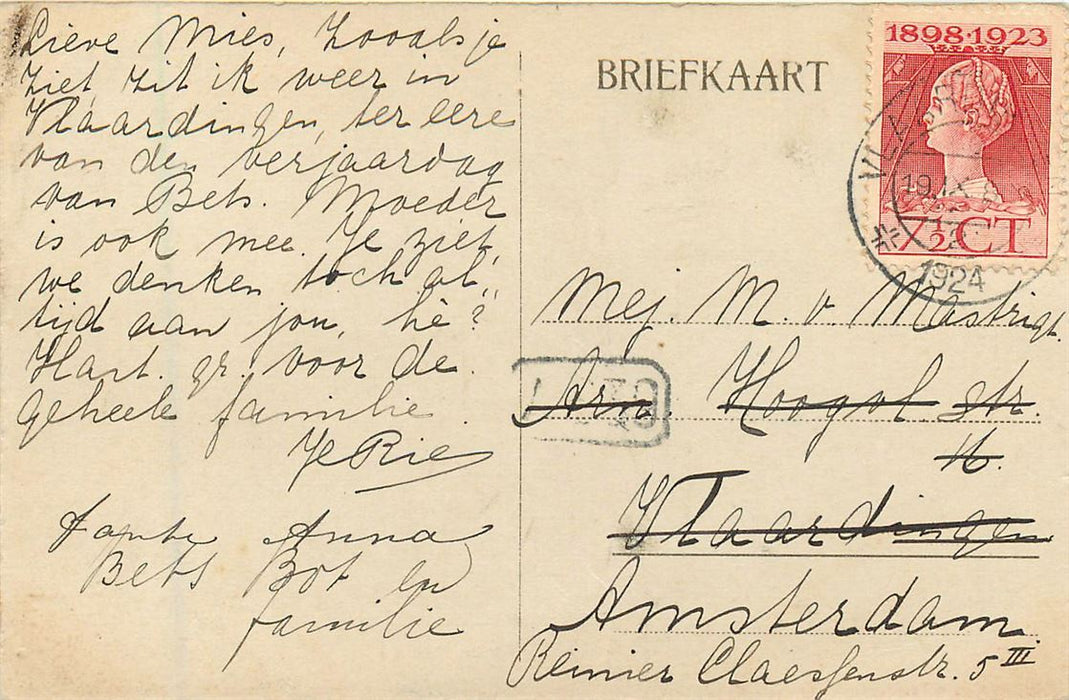 Lieve Mies, Zooals je
ziet, zit ik weer in
Vlaardingen, ter eere
van den verjaardag
van Bets. Moeder
is ook mee. Je ziet,
we denken toch al„
tijd aan jou, hè?
Hart. gr. voor de
geheele familie
Je Rie
Tante Anna
Bets Bot en
familie
BRIEFKAART
1898·1923
7½ CT
VL
1924
Mej. M. v. Mastrigt.
Hoogol. str.
16.
Vlaardingen
Amsterdam
Reinier Claeszenstr. 5 III